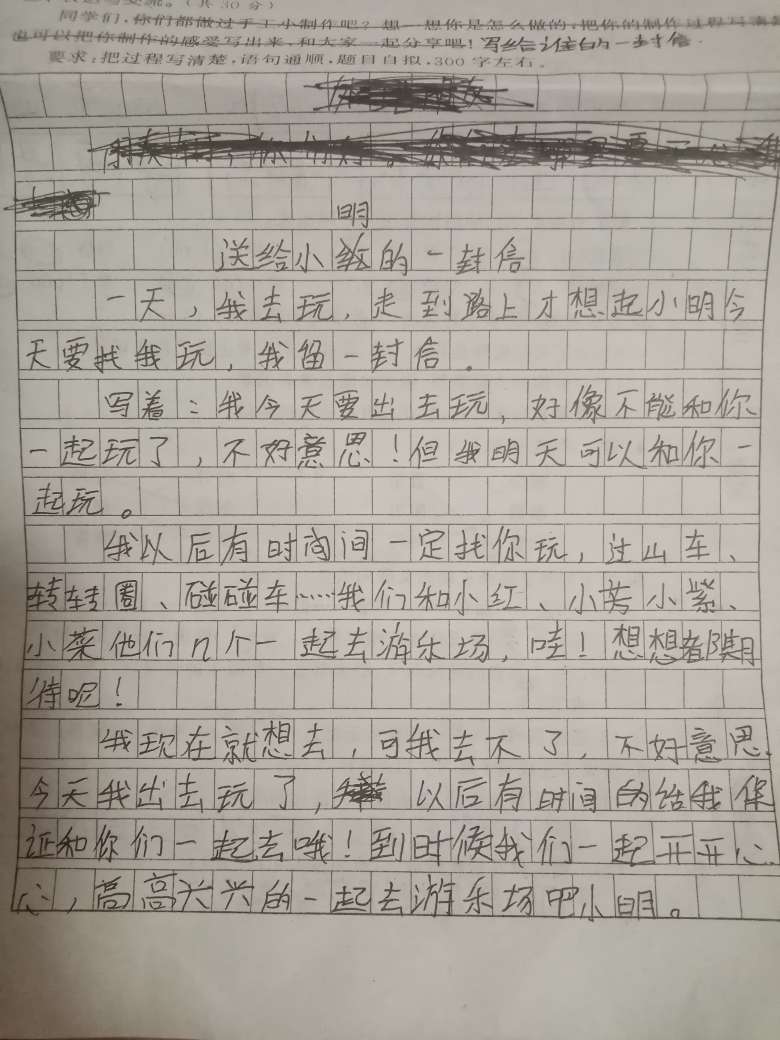 表达与交流。(共30分)
同学们,你们都做过手工小制作吧?想一想你是怎么做的,把你的制作过程写清楚
也可以把你制作的感受写出来,和大家一起分享吧!写给谁的一封信.
要求:把过程写清楚,语句通顺,题目自拟,300字左右。
明
送给小的一封信
一天,我去玩,走到路上才想起小明今
天要找我玩,我留一封信.
写着:我今天要出去玩,好像不能和你
一起玩了,不好意思!但我明天可以和你一
起玩。
我以后有时间间一定找你玩,过山车、
转转圈、碰碰车……我们和小红、小芳小紫、
小菜他们几个一起去游乐场,哇!想想都期
待呢!
我现在就想去,可我去不了,不好意思.
今天我出去玩了,以后有时间的给我保
证和你们一起去哦!到时候我们一起开开心
心,高高兴兴的一起去游乐场吧小明。